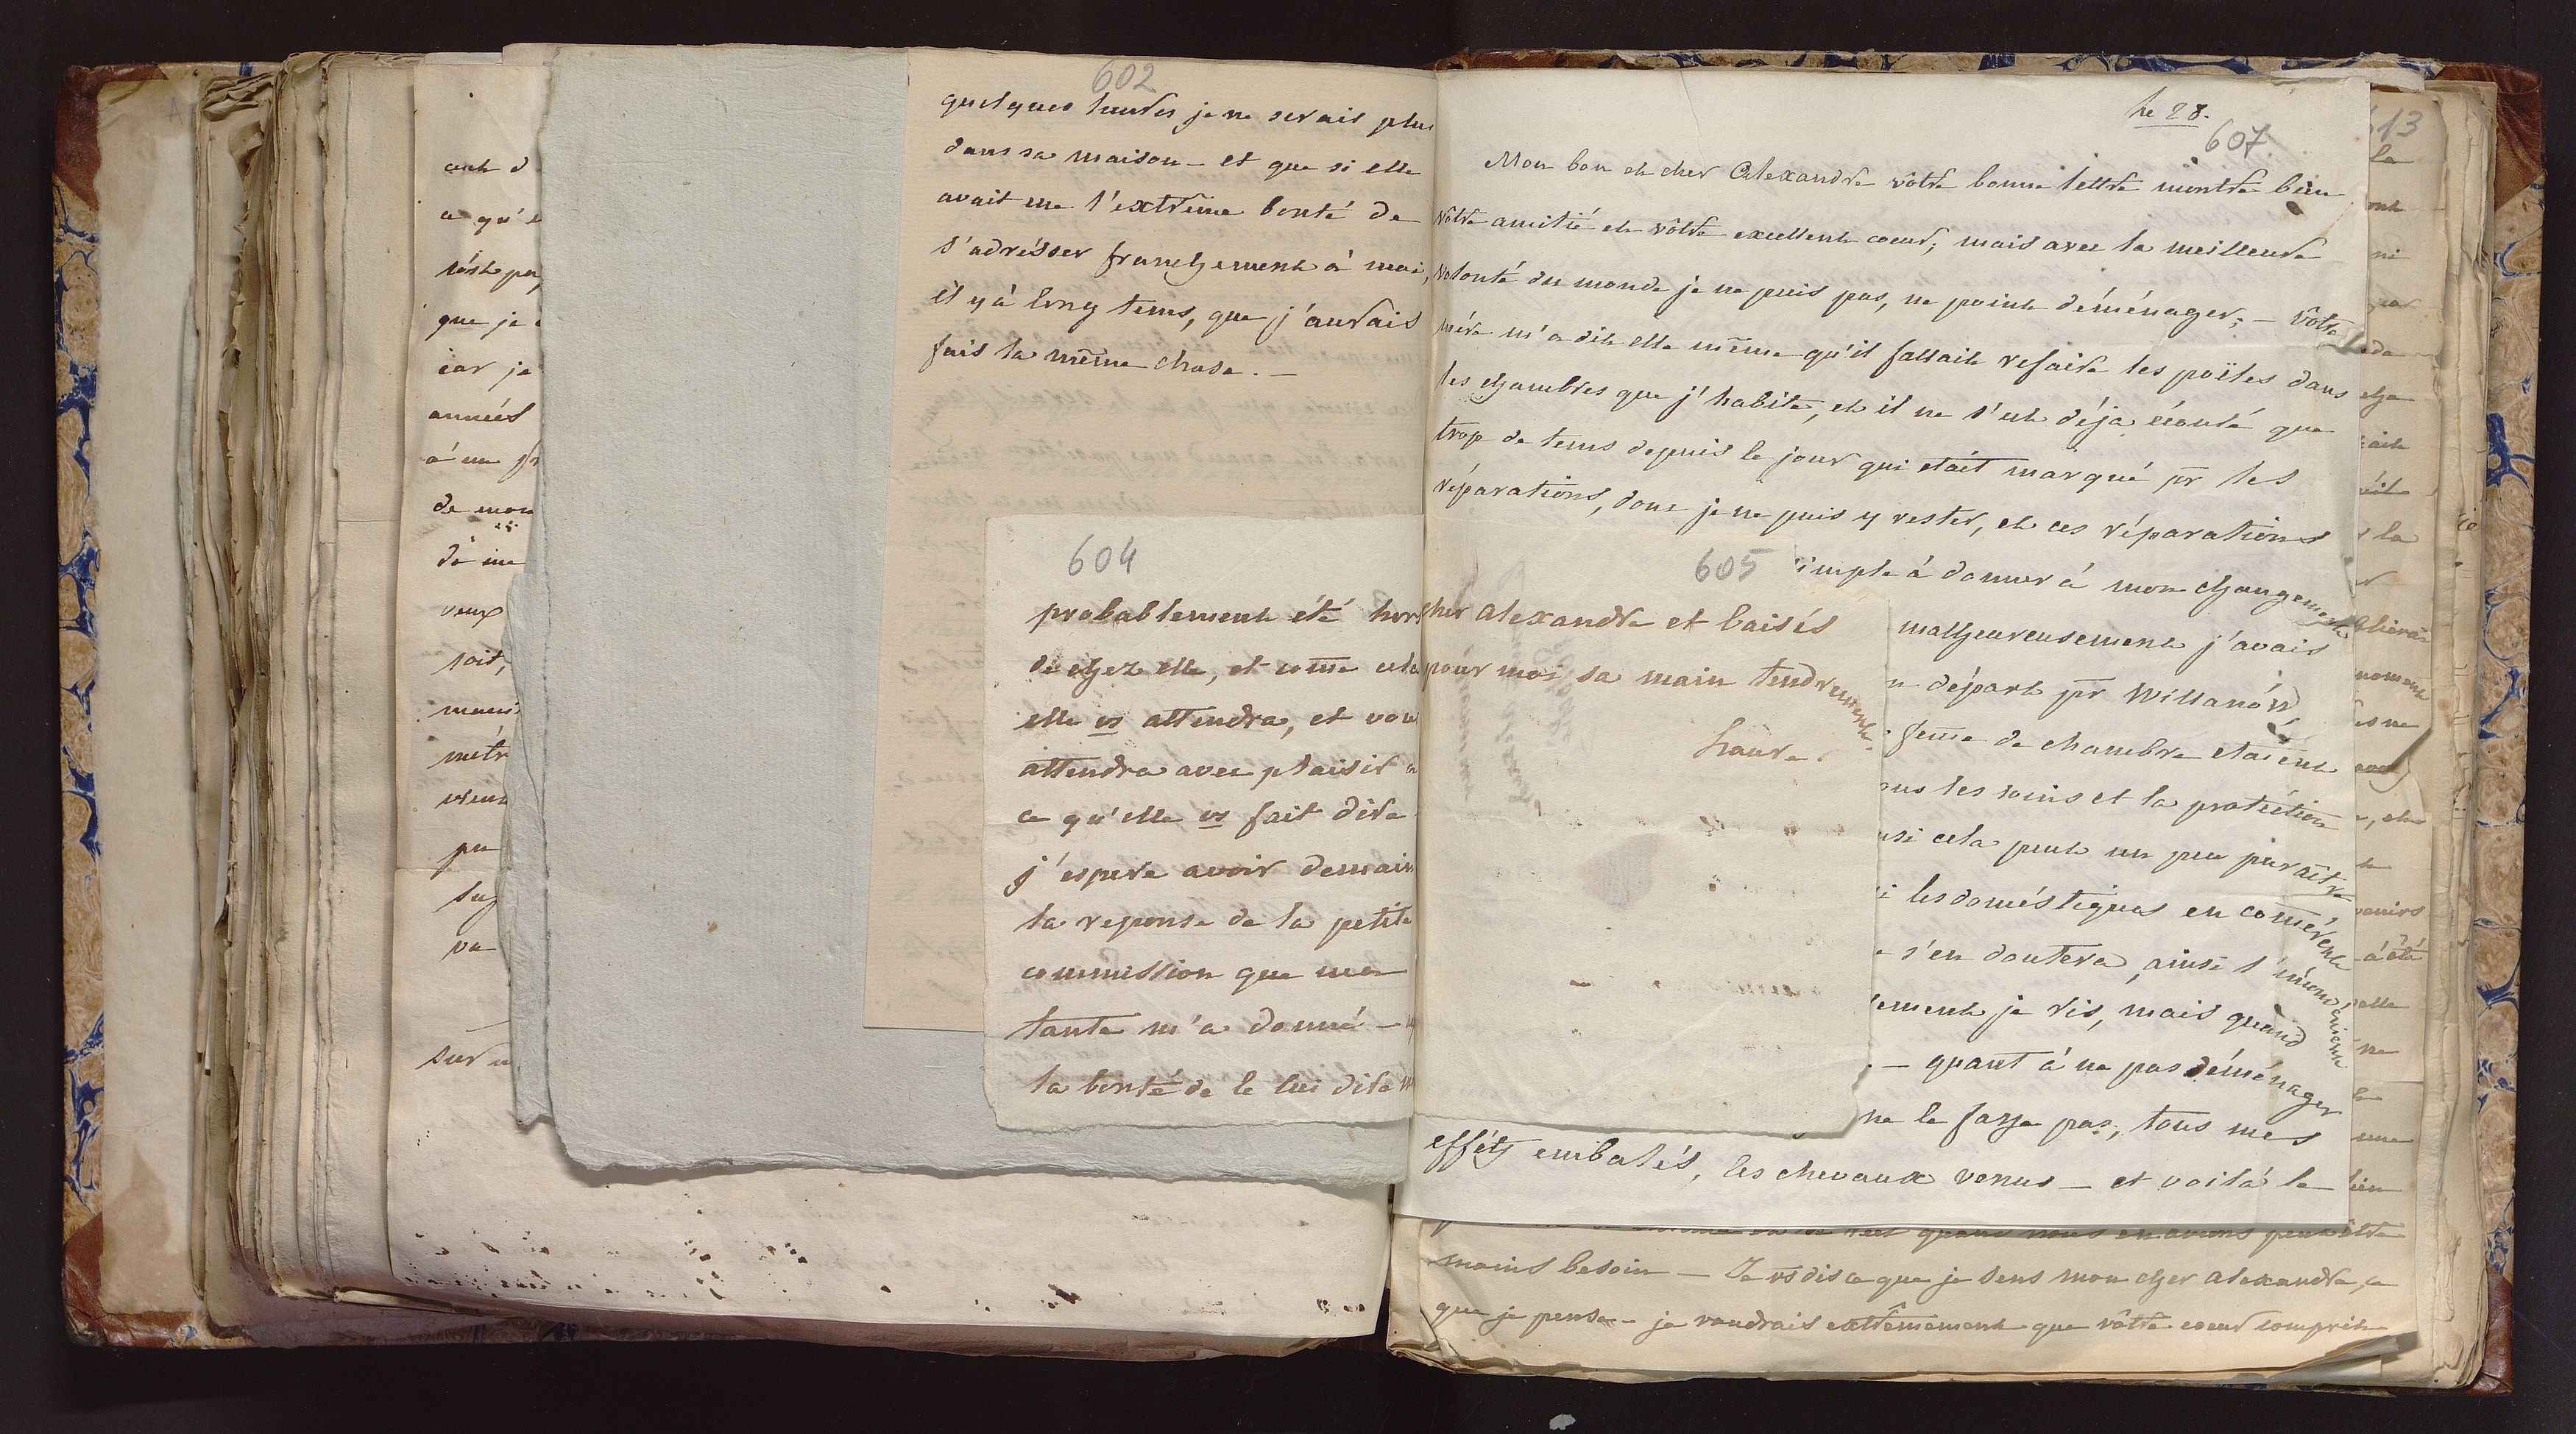 602
quelques heures je ne serais plus
dans sa maison – et que si elle
avait eue l'extrême bonté de
s'adrésser franchement à moi,
il y à long tems, que j'aurais
fais la même chose. –
604
probablement été hors
de chez elle, et come cela
elle vs attendra, et vous
attendra avec plaisir a
ce qu'elle vs fait dire
j'espere avoir demain
la reponse de la petite
commission que ma
tante m'a donné –
la bonté de le lui dire
605
cher Alexandre et baisés
pour moi sa main tendrement.
Laure.
le 28.
607
Mon bon et cher Alexandre vôtre bonne lettre montre bien
vôtre amitié et vôtre excellent coeur; mais avec la meilleure
volonté du monde je ne puis pas, ne point déménager; – vôtre
mére m'a dit elle même qu'il fallait refaire les poëles dans
les chambres que j'habite, et il ne s'est déja écoulé que
trop de tems depuis le jour qui etait marqué pr les
réparations, donc je ne puis y rester, et ces réparations
simple à donner à mon changement
malheureusement j'avais
n départ pr Willanów
feme de chambre etaient
ous les soins et la protéction
nsi cela peut un peu paraitre
i les doméstiques en comérent
s'en doutera, ainsi
lement je ris, mais quand
. – quant à ne pas déménager
ne le fasse pas, tous mes
efféts embalés, les chevaux venus – et voilà le
quand nous en avons peut être
moins besoin – Je vs dis ce que je sens mon cher Alexandre, ce
que je pense – je voudrais extrêmement que vôtre coeur comprit
cent d
ce qu'e
n'est pa
que je
car je
années
à un
de mon
de me
veux
soit,
métr
pu
va
sur
613
la
ni
la
noment
es ne
venirs
a été
elle
ne
une
bien